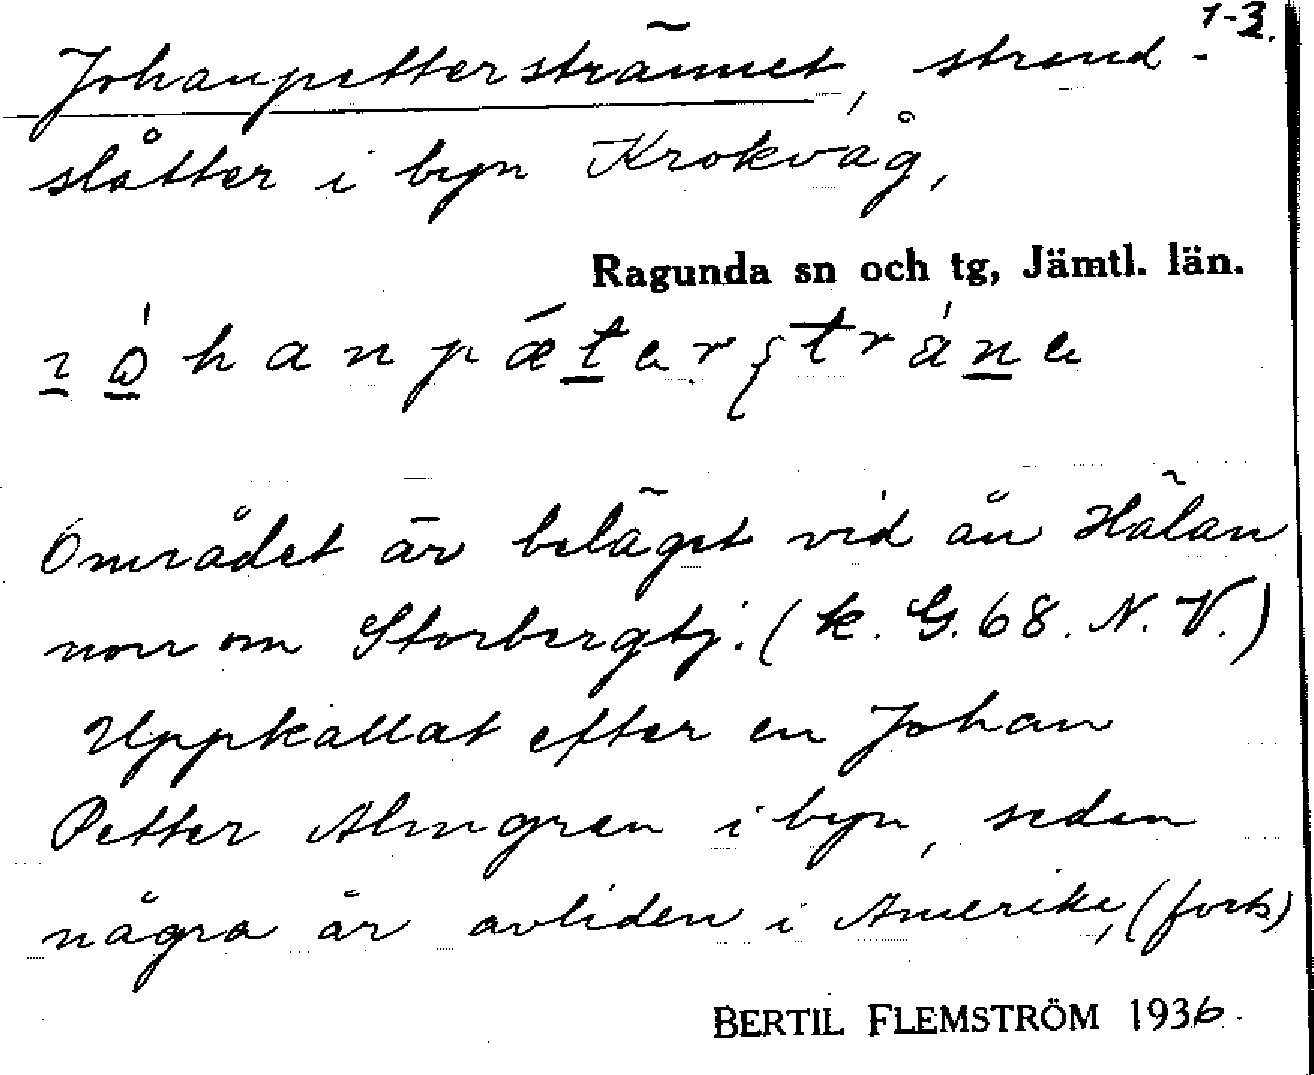 1-3.
Johanpetterstrännet, strand-
slåtter i byn Krokvåg,
Ragunda sn och tg, Jämtl. län.
Området är beläget vid ån Hålan
norr om Storbergtj. (k. G. 68. N. V.)
Uppkallat efter en Johan
Petter Almgren i byn, sedan
några år avliden i Amerika, (forts)
BERTIL FLEMSTRÖM 1936.